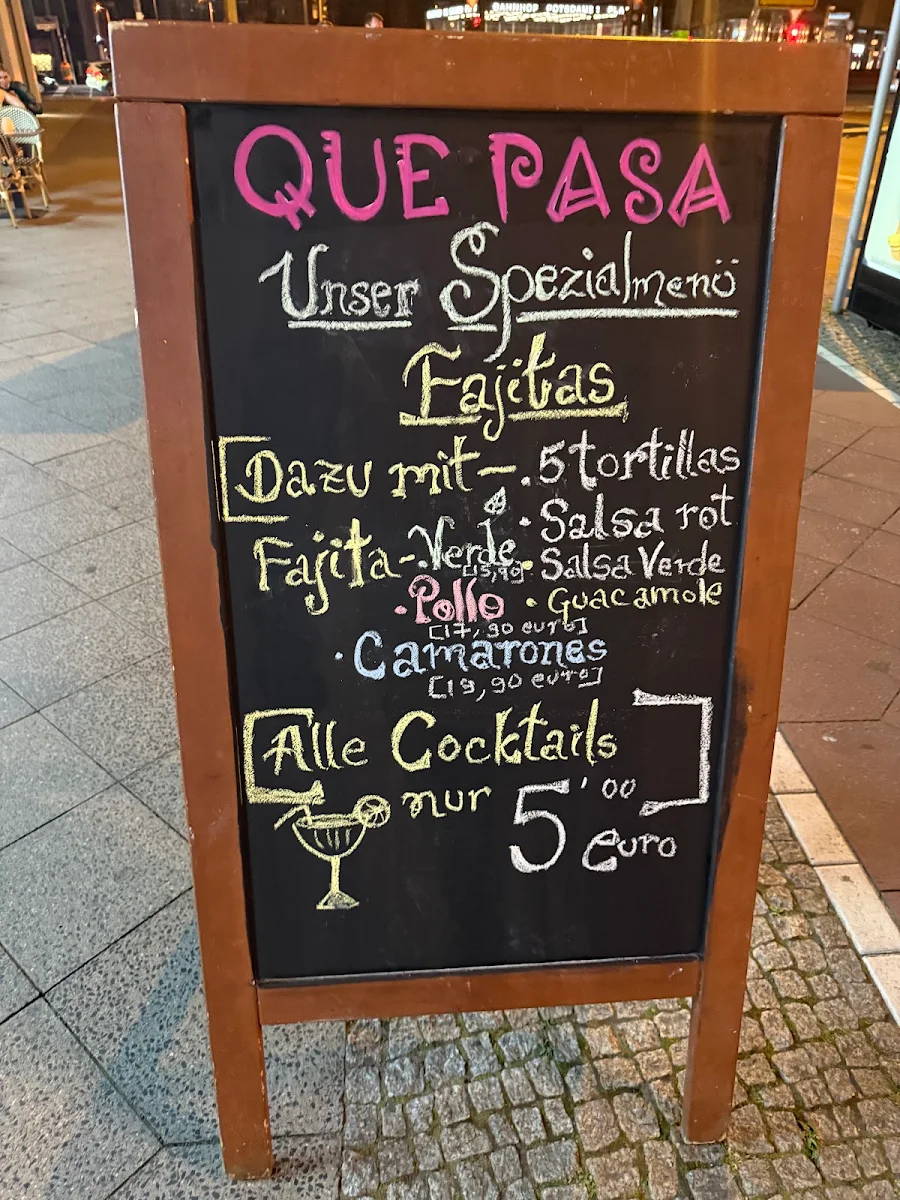 BAHNHOF POTSDAMER PLA
QUE PASA
Unser Spezialmenü
Fajitas
Dazu mit - . 5 tortillas
· Salsa rot
Fajita - · Verde · Salsa Verde
[15,90]
· Pollo · Guacamole
[17,90 euro]
· Camarones
[19,90 euro]
Alle Cocktails
nur 5'00
euro